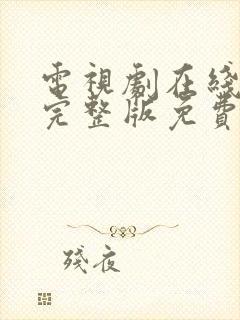 電視劇在綫
完整版免費
殘夜